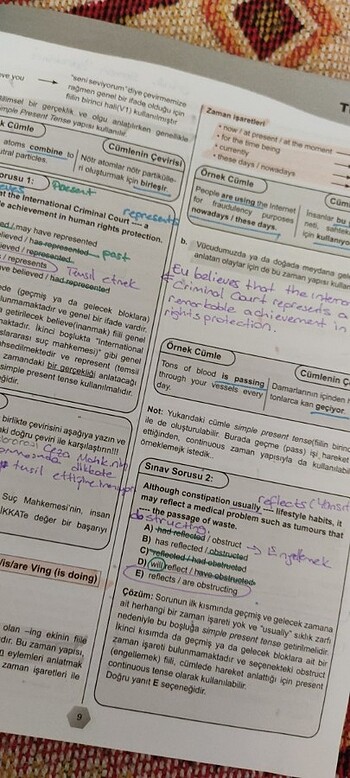 "seni seviyorum" diye çevirmemize
rağmen genel bir ifade olduğu için
fiilin birinci hali(V1) kullanılmıştır
bilimsel bir gerçeklik ve olgu anlatılırken genellikle
Simple Present Tense yapısı kullanılır
k Cümle
Cümlenin Çevirisi
atoms combine to
utral particles.
Nötr atomlar nötr partiküller
ri oluşturmak için birleşir.
orusu 1:
present
represents
at the International Criminal Court ---- a
le achievement in human rights protection.
/ may have represented
elieved / has represented
past
elieved / represented
/ represents
Temsil etmek
ve believed / had represented
ede (geçmiş ya da gelecek bloklara)
lunmamaktadır ve genel bir ifade vardır.
a getirilecek believe(inanmak) fiili genel
maktadır. İkinci boşlukta "International
slararası suç mahkemesi)" gibi genel
hsedilmektedir ve represent (temsil
zamandaki bir gerçekliği anlatacağı
simple present tense kullanılmalıdır.
ğidir.
birlikte çevirisini aşağıya yazın ve
ki doğru çeviri ile karşılaştırın!!!
Ceza Mahkemesi
dikkate
temsil ettiğine inanıyor
Suç Mahkemesi'nin, insan
İKKATe değer bir başarıyı
/is/are Ving (is doing)
olan –ing ekinin fiile
dır. Bu zaman yapısı,
n eylemleri anlatmak
zaman işaretleri ile
9
Zaman işaretleri
• now / at present / at the moment
• for the time being
• currently
• these days / nowadays
Örnek Cümle
People are using the Internet
for fraudulency purposes
nowadays / these days.
Cüm
İnsanlar bu
neti, sahtek
için kullanıyo
b. Vücudumuzda ya da doğada meydana gele
anlatan olaylar için de bu zaman yapısı kullan
Eu believes that the interna
Criminal Court represents a
remarkable achievement in
rights protection.
Örnek Cümle
Cümlenin Ç
Tons of blood is passing
through your vessels every
day.
Damarlarının içinden h
tonlarca kan geçiyor.
Not: Yukarıdaki cümle simple present tense(fiilin birinc
ile de oluşturulabilir. Burada geçme (pass) işi hareket
ettiğinden, continuous zaman yapısıyla da kullanılabil
örneklemek istedik.
Sınav Sorusu 2:
reflects (Yansıt
Although constipation usually ---- lifestyle habits, it
may reflect a medical problem such as tumours that
---- the passage of waste.
obstructing
A) had reflected / obstruct
→ Engellemek
B) has reflected / obstructed
C) reflected / had obstructed
D) will reflect / have obstructed
E) reflects / are obstructing
Çözüm: Sorunun ilk kısmında geçmiş ve gelecek zamana
ait herhangi bir zaman işareti yok ve "usually" sıklık zarfı
nedeniyle bu boşluğa simple present tense getirilmelidir.
İkinci kısımda da geçmiş ya da gelecek bloklara ait bir
zaman işareti bulunmamaktadır ve seçenekteki obstruct
(engellemek) fiili, cümlede hareket anlattığı için present
continuous tense olarak kullanılabilir.
Doğru yanıt E seçeneğidir.